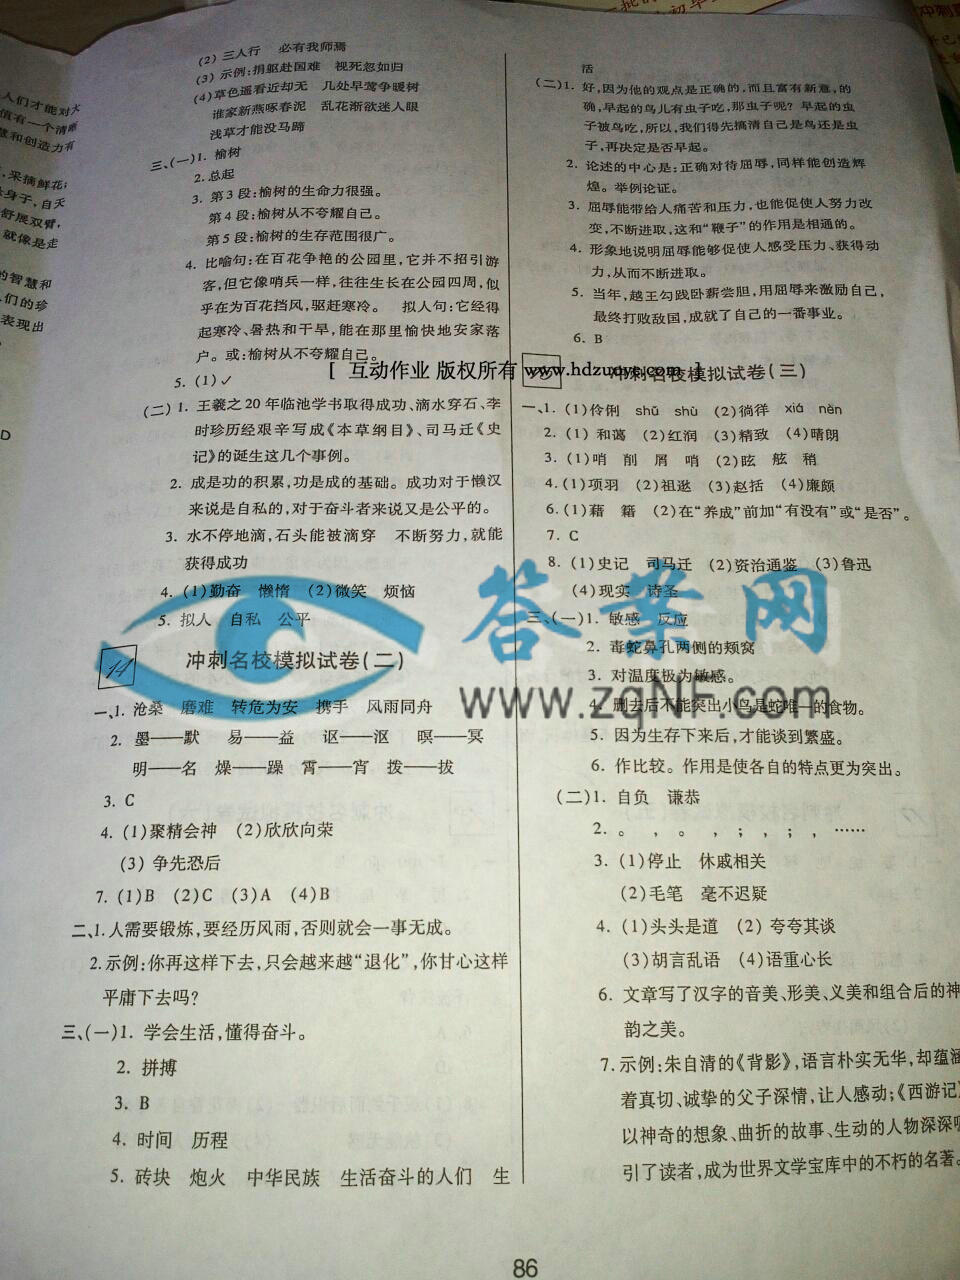 人们才能对大
值有一个清晰
慧和创造力有
，采摘鲜花；
身子，自天
舒展双臂，
就像是走
的智慧和
人们的珍
表现出
D
(2) 三人行　必有我师焉
(3) 示例：捐躯赴国难　视死忽如归
(4)草色遥看近却无　几处早莺争暖树
谁家新燕啄春泥　乱花渐欲迷人眼
浅草才能没马蹄
三、(一)1. 榆树
2. 总起
3. 第3段：榆树的生命力很强。
第4段：榆树从不夸耀自己。
第5段：榆树的生存范围很广。
4. 比喻句：在百花争艳的公园里，它并不招引游
客，但它像哨兵一样，往往生长在公园四周，似
乎在为百花挡风，驱赶寒冷。　拟人句：它经得
起寒冷、暑热和干旱，能在那里愉快地安家落
户。或：榆树从不夸耀自己。
5. (1)✓
(二)1. 王羲之20年临池学书取得成功、滴水穿石、李
时珍历经艰辛写成《本草纲目》、司马迁《史
记》的诞生这几个事例。
2. 成是功的积累，功是成的基础。成功对于懒汉
来说是自私的，对于奋斗者来说又是公平的。
3. 水不停地滴，石头能被滴穿　不断努力，就能
获得成功
4. (1)勤奋　懒惰　(2)微笑　烦恼
5. 拟人　自私　公平
14
冲刺名校模拟试卷(二)
一、1. 沧桑　磨难　转危为安　携手　风雨同舟
2. 墨——默　易——益　讴——沤　暝——冥
明——名　燥——躁　霄——宵　拨——拔
3. C
4. (1)聚精会神　(2)欣欣向荣
(3) 争先恐后
7. (1)B　(2)C　(3)A　(4)B
二、1. 人需要锻炼，要经历风雨，否则就会一事无成。
2. 示例：你再这样下去，只会越来越“退化”，你甘心这样
平庸下去吗？
三、(一)1. 学会生活，懂得奋斗。
2. 拼搏
3. B
4. 时间　历程
5. 砖块　炮火　中华民族　生活奋斗的人们　生
活
(二)1. 好，因为他的观点是正确的，而且富有新意，的
确，早起的鸟儿有虫子吃，那虫子呢？早起的虫
子被鸟吃，所以，我们得先搞清自己是鸟还是虫
子，再决定是否早起。
2. 论述的中心是：正确对待屈辱，同样能创造辉
煌。举例论证。
3. 屈辱能带给人痛苦和压力，也能促使人努力改
变，不断进取，这和“鞭子”的作用是相通的。
4. 形象地说明屈辱能够促使人感受压力、获得动
力，从而不断进取。
5. 当年，越王勾践卧薪尝胆，用屈辱来激励自己，
最终打败敌国，成就了自己的一番事业。
6. B
[ 互动作业 版权所有 www.hdzuoye.com ]
冲刺名校模拟试卷(三)
一、1. (1)伶俐　shǔ　shù　(2)徜徉　xiá　nèn
2. (1) 和蔼　(2)红润　(3)精致　(4)晴朗
3. (1)哨　削　屑　哨　(2)眩　舷　稍
4. (1)项羽　(2)祖逖　(3)赵括　(4)廉颇
6. (1)藉　籍　(2)在“养成”前加“有没有”或“是否”。
7. C
8. (1)史记　司马迁　(2)资治通鉴　(3)鲁迅
(4)现实　诗圣
三、(一)1. 敏感　反应
2. 毒蛇鼻孔两侧的颊窝
3. 对温度极为敏感。
4. 删去后不能突出小鸟是蛇唯一的食物。
5. 因为生存下来后，才能谈到繁盛。
6. 作比较。作用是使各自的特点更为突出。
(二)1. 自负　谦恭
2. 。　，　。　；　；　，　……
3. (1)停止　休戚相关
(2)毛笔　毫不迟疑
4. (1)头头是道　(2) 夸夸其谈
(3)胡言乱语　(4)语重心长
6. 文章写了汉字的音美、形美、义美和组合后的神
韵之美。
7. 示例：朱自清的《背影》，语言朴实无华，却蕴涵
着真切、诚挚的父子深情，让人感动；《西游记》
以神奇的想象、曲折的故事、生动的人物深深吸
引了读者，成为世界文学宝库中的不朽的名著。
答案网
www.zqNF.com
86